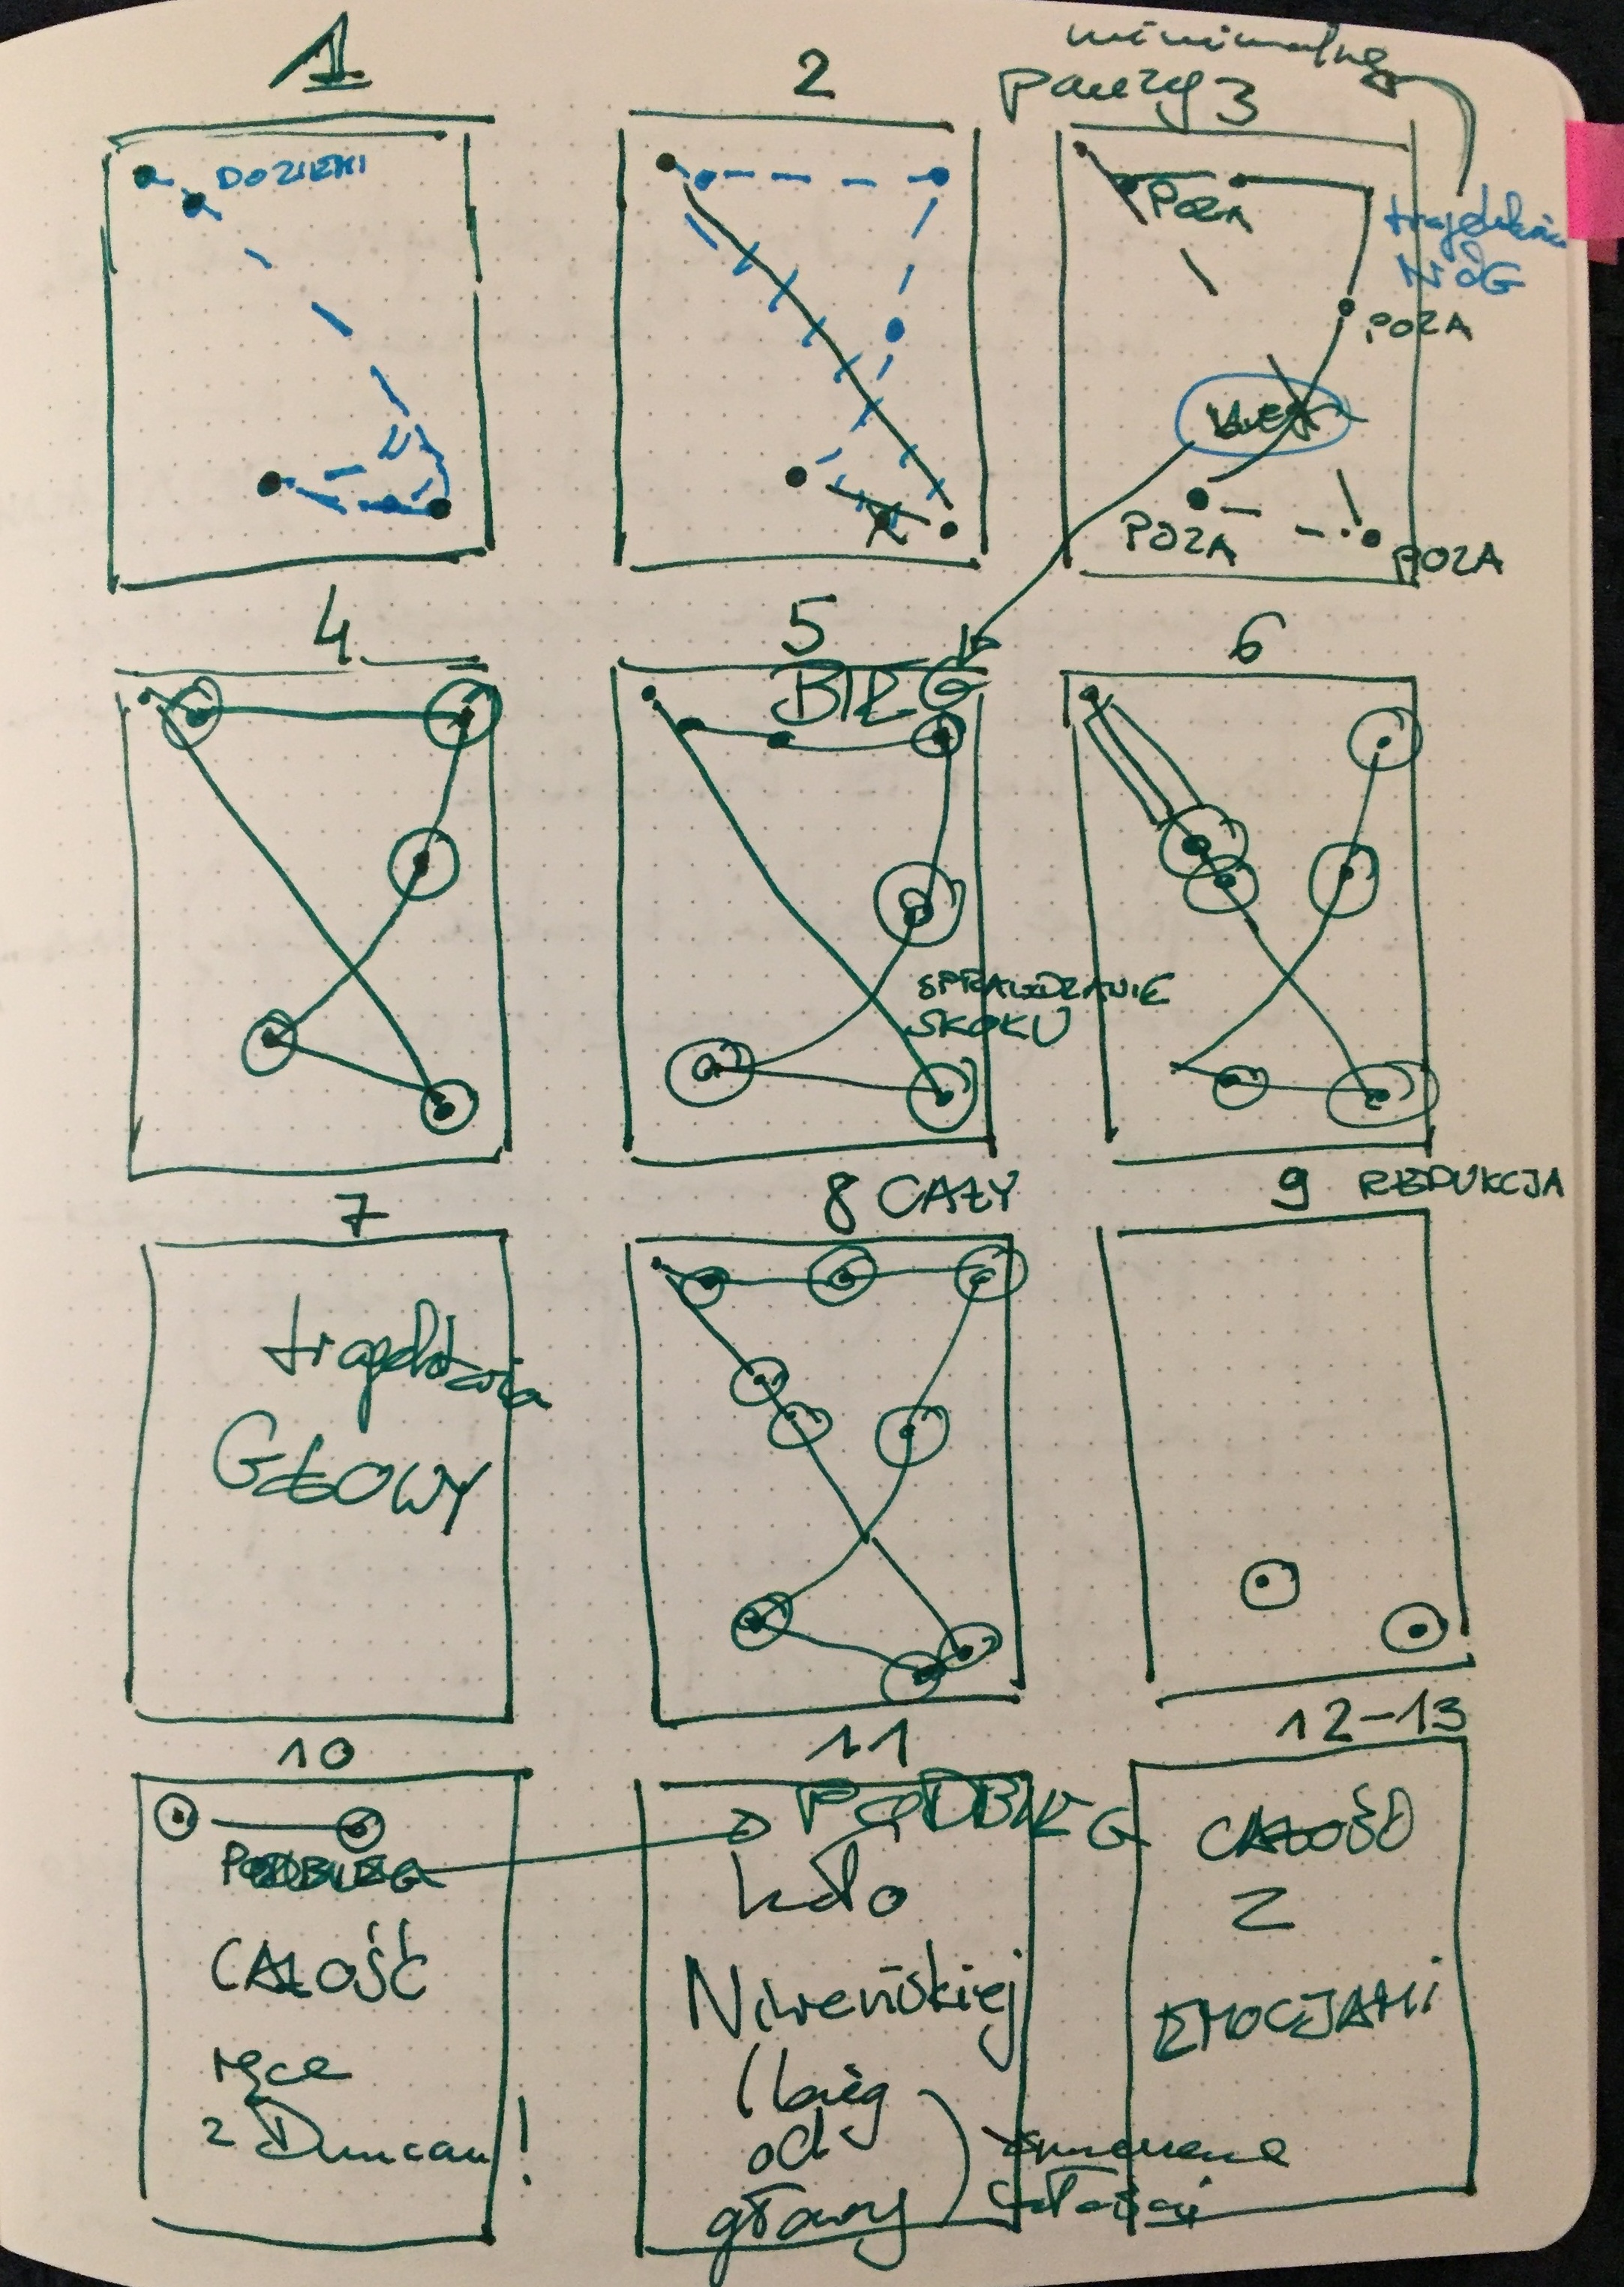 1
2
minimalne
pauzy 3
DO ZIEMI
POZA
trajektoria
NÓG
POZA
POZA
POZA
4
5
6
BIEG
SPRAWDZANIE
SKOKU
7
8 CAŁY
9 REDUKCJA
trajektoria
GŁOWY
10
11
12-13
PODBIEG
CAŁOŚĆ
ręce
z Duncan!
PODBIEG
koło
Niżeńskiej
(bieg
od
głowy
CAŁOŚĆ
Z
EMOCJAMI